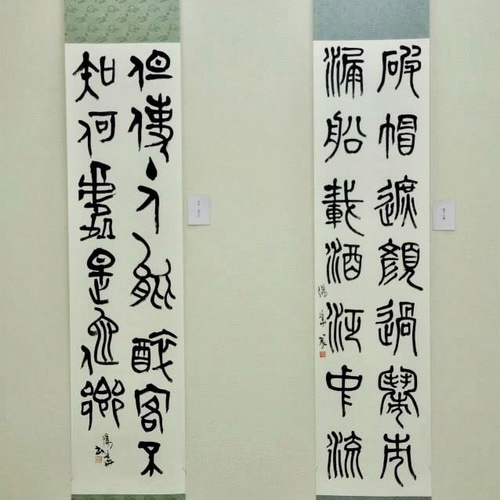 破帽遮顔過鬧市
漏船載酒泛中流
但使主人能醉客不
知何處是他鄉